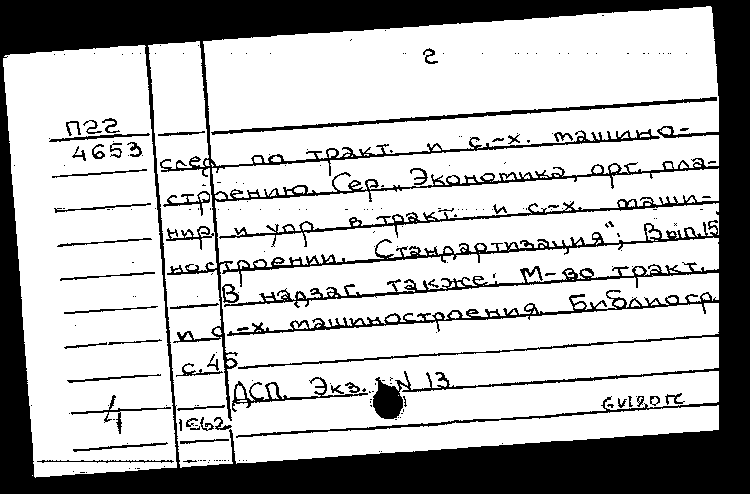 2
П22
4653
след. по тракт. и с.-х. машино-
строению. Сер. „Экономика, орг., пла-
нир. и упр. в тракт. и с.-х. маши-
ностроении. Стандартизация"; Вып.15
В надзаг. также: М-во тракт.
и с.-х. машиностроения. Библиогр.
с.45
ДСП. Экз. N 13
4